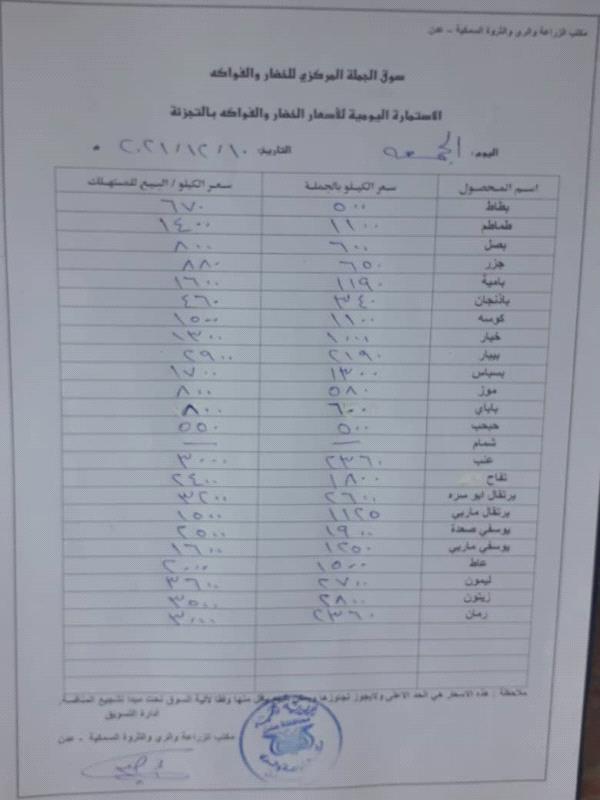 مكتب الزراعة والري والثروة السمكية - عدن
سوق الجملة المركزي للخضار والفواكه
الاستمارة اليومية لأسعار الخضار والفواكه بالتجزئة
اليوم: الجمعه التاريخ: ٢٠٢١/١٢/١٠ م
اسم المحصول سعر الكيلو بالجملة سعر الكيلو / البيع للمستهلك
بطاط ٥٠٠ ٦٧٠
طماطم ١١٠٠ ١٤٠٠
بصل ٦٠٠ ٨٠٠
جزر ٦٥٠ ٨٨٠
بامية ١١٩٠ ١٦٠٠
باذنجان ٣٤٠ ٤٦٠
كوسه ١١٠٠ ١٥٠٠
خيار ١٠٠٠ ١٣٠٠
بيبار ٢١٩٠ ٢٩٠٠
بسباس ١٣٠٠ ١٧٠٠
موز ٥٨٠ ٨٠٠
باباي ٦٠٠ ٨٠٠
حبحب ٥٠٠ ٥٥٠
شمام — —
عنب ٢٣٦٠ ٣٠٠٠
تفاح ١٨٠٠ ٢٤٠٠
برتقال ابو سره ٢٦٠٠ ٣٢٠٠
برتقال ماربي ١١٢٥ ١٥٠٠
يوسفي صعدة ١٩٠٠ ٢٥٠٠
يوسفي ماربي ١٢٥٠ ١٦٠٠
عاط ١٥٠٠ ٢٠٠٠
ليمون ٢٧٠٠ ٣٦٠٠
زيتون ٢٨٠٠ ٣٥٠٠
رمان ٢٣٦٠ ٣٠٠٠
ملاحظة : هذه الاسعار هي الحد الاعلى ولايجوز تجاوزها ويمكن البيع باقل منها وفقا لآلية السوق تحت مبدا تشجيع المنافسة.
ادارة التسويق
مكتب الزراعة والري والثروة السمكية - عدن